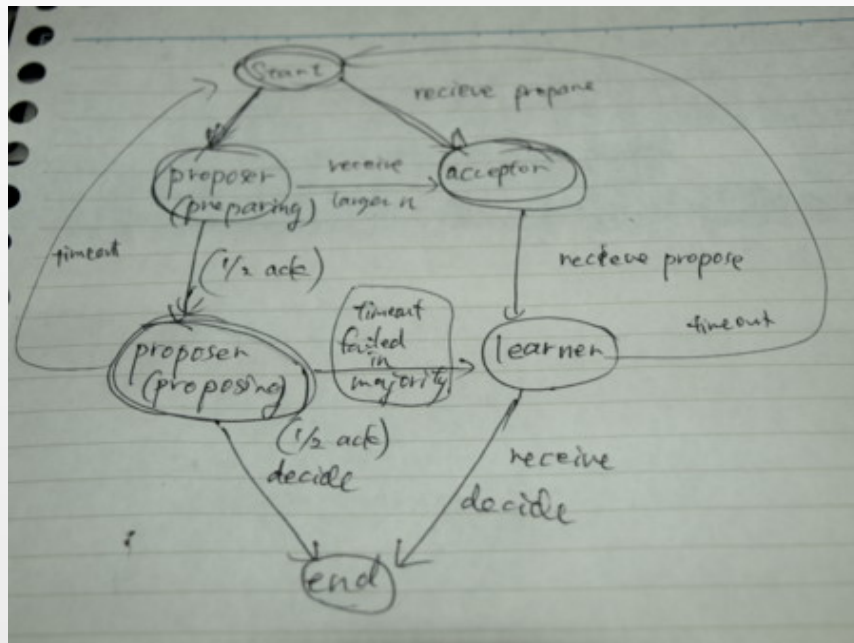 Start
recieve propane
proposer
(preparing)
receive
larger n
acceptor
timeout
(1/2 ack)
recieve propose
timeout
failed
in
majority
timeout
proposer
(proposing)
learner
(1/2 ack)
decide
receive
decide
end